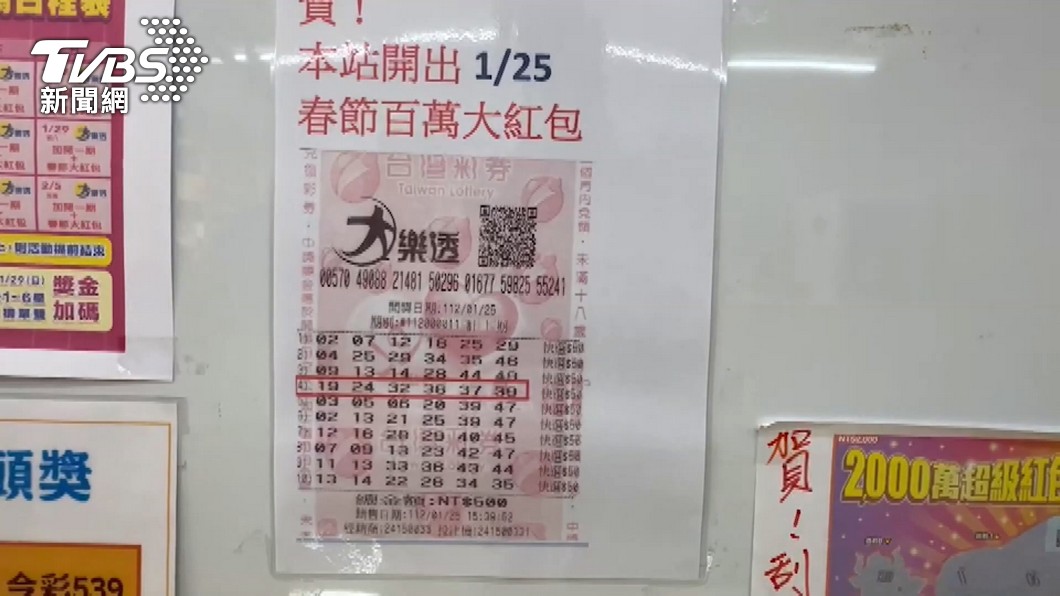 TVBS
新聞網
賀！
本站開出 1/25
春節百萬大紅包
台灣彩券
Taiwan Lottery
大樂透
00570 49088 21481 50296 01677 59825 55241
開獎日期:112/01/25
02 07 12 18 25 29 快選$50
04 25 29 34 35 48 快選$50
09 13 14 28 44 48 快選$50
19 24 32 36 37 39 快選$50
03 05 06 20 39 47 快選$50
02 13 21 25 39 47 快選$50
12 16 28 29 40 45 快選$50
07 09 13 23 42 47 快選$50
11 13 33 36 43 44 快選$50
13 14 22 28 34 35 快選$50
總金額:NT$500
銷售日期:112/01/25 15:39:52
1/29
加開一期
+
春節大紅包
2/5
加開一期
+
春節大紅包
獎金
加碼
頭獎
今彩539
賀！刮
NT$2,000
2000萬超級紅包